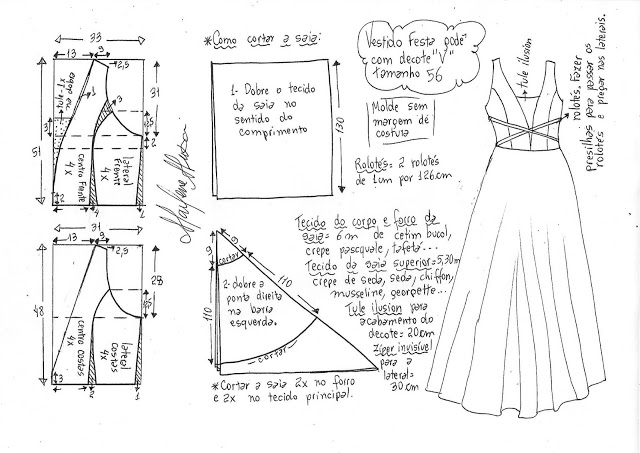 33
13
9
2,5
31
51
3
tule
1x
dobra
1
3
2
2
centro frente
4x
lateral
frente
4x
4
2
31
13
9
2,5
28
48
3
centro costas
4x
lateral
costas
4x
2
Marlene Mukai
*Como cortar a saia:
1- Dobre o tecido
da saia no
sentido do
comprimento
130
9
9
cortar
110
110
2- dobre a
ponta direita
na barra
esquerda.
cortar
*Cortar a saia 2x no forro
e 2x no tecido principal.
Vestido Festa pode
com decote "V"
tamanho 56
Molde sem
margem de
costura
Rolotês: 2 rolotês
de 1cm por 126cm
Tecido do corpo e forro da
saia = 6m de cetim bucol,
crepe pasquale, tafetá...
Tecido da saia superior = 5,30m
crepe de seda, seda, chiffon,
musseline, georgette...
Tule ilusion para
acabamento do
decote = 20cm
Zíper invisível
para a
lateral =
30cm
tule ilusion
rolotês. Fazer
presilhas para passar os
rolotês e pregar nas laterais.